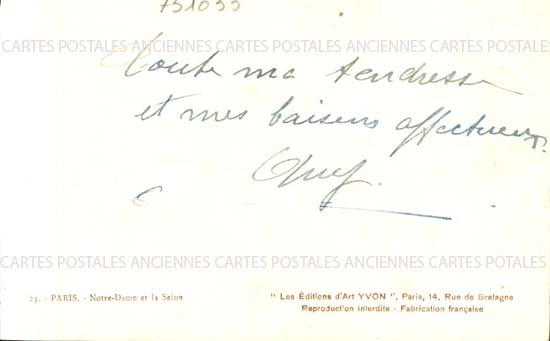 751033
CARTES POSTALES ANCIENNES CARTES POSTALES ANCIENNES CARTES POSTALES
Toute ma tendresse
et mes baisers affectueux.
CARTES POSTALES ANCIENNES CARTES POSTALES ANCIENNES CARTES POSTALES
24. - PARIS. - Notre-Dame et la Seine
" Les Éditions d'Art YVON ", Paris, 14, Rue de Bretagne
Reproduction interdite - Fabrication française